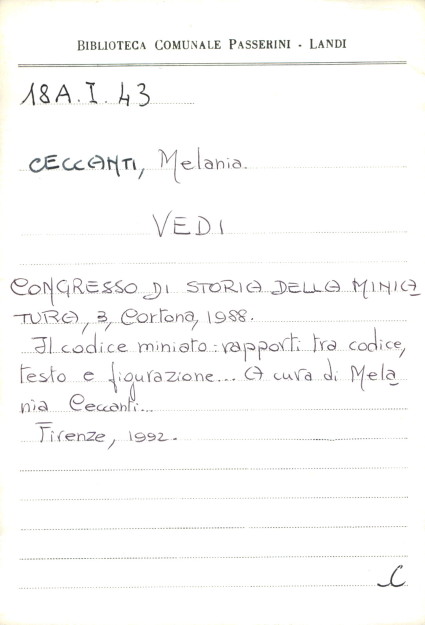 BIBLIOTECA COMUNALE PASSERINI - LANDI
18A.I.43
CECCANTI, Melania.
VEDI
CONGRESSO DI STORIA DELLA MINIA
TURA, 3, Cortona, 1988.
Il codice miniato: rapporti tra codice,
testo e figurazione... A cura di Mela
nia Ceccanti...
Firenze, 1992.
C